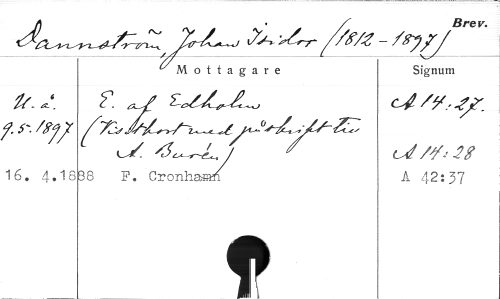 Brev.
Dannström, Johan Isidor (1812-1897)
Mottagare Signum
U.å. E. af Edholm A 14:27.
9.5.1897 (Visitkort med påskrift till
A. Burén) A 14:28
16. 4.1888 F. Cronhamn A 42:37